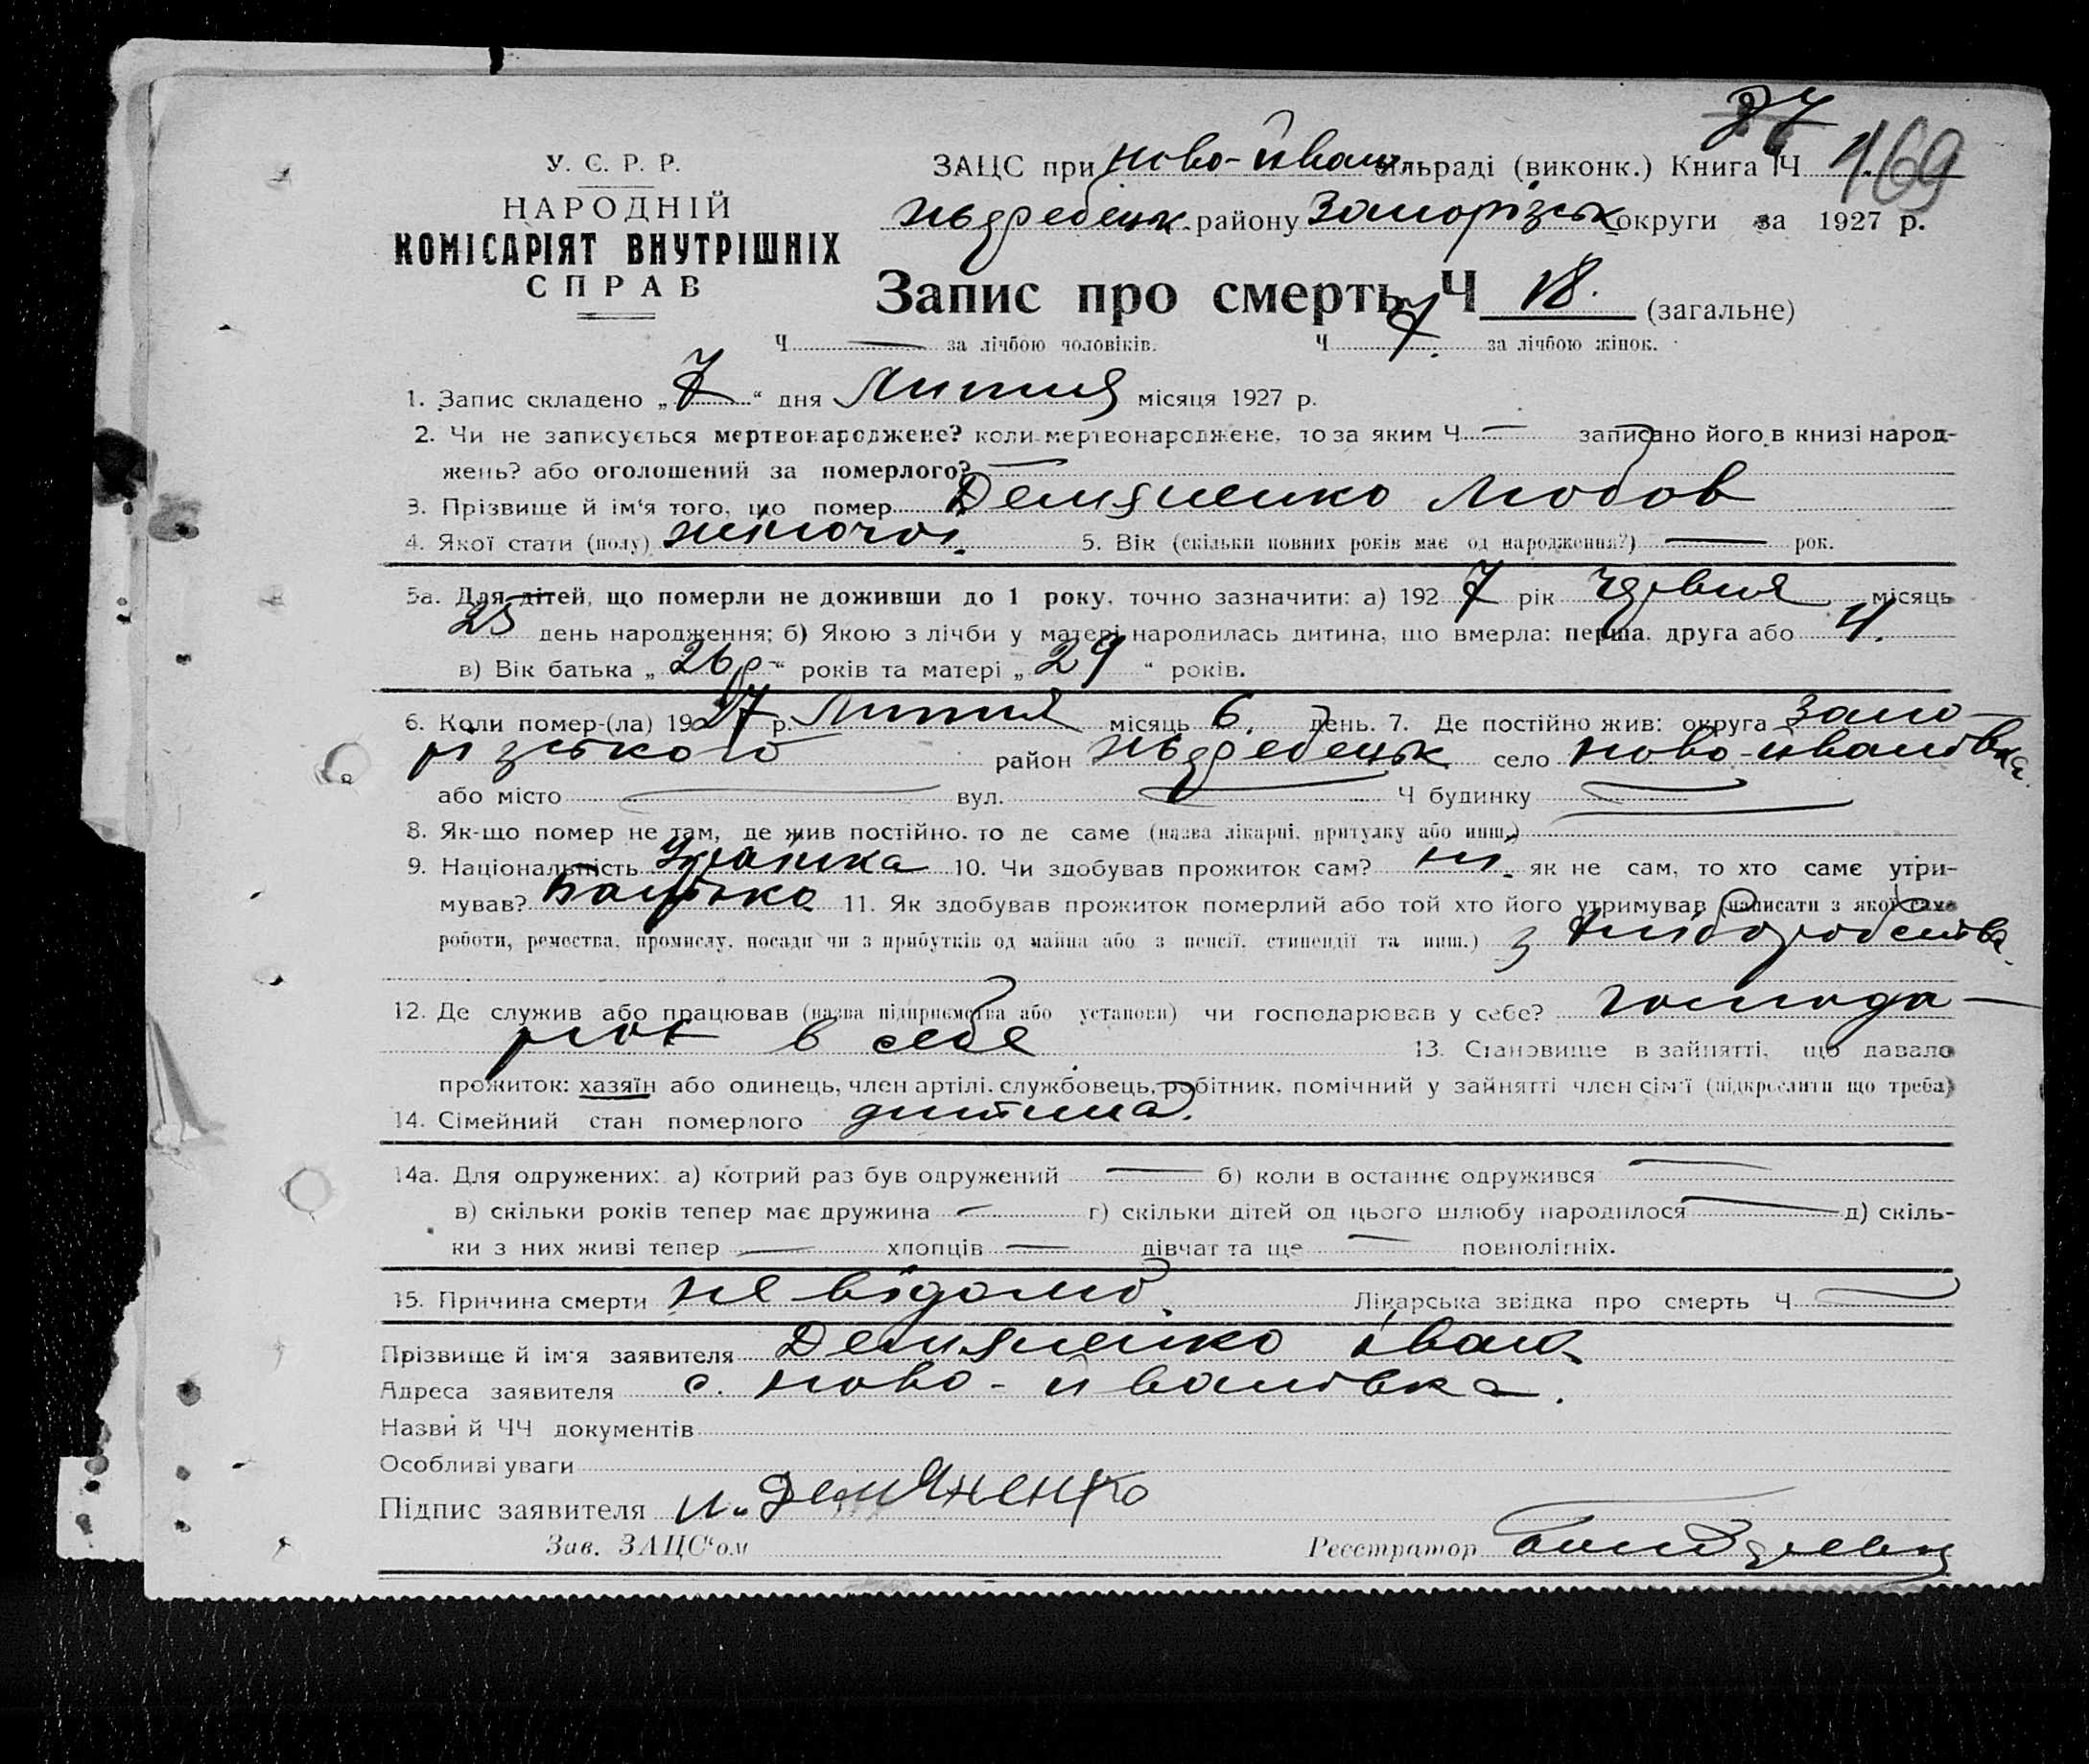 37
169
У. С. Р. Р.
НАРОДНІЙ
КОМІСАРІЯТ ВНУТРІШНІХ
СПРАВ
ЗАЦС при Ново-Іван. сільраді (виконк.) Книга Ч 1.
району Запорізьк округи за 1927 р.
Запис про смерть Ч 18. (загальне)
Ч — за лічбою чоловіків. Ч 7. за лічбою жінок.
1. Запис складено „7“ дня Липня місяця 1927 р.
2. Чи не записується мертвонароджене? коли мертвонароджене, то за яким Ч — записано його в книзі народ-
жень? або оголошений за померлого? —
3. Прізвище й ім'я того, що помер Демяненко Любов
4. Якої статі (полу) жіночої. 5. Вік (скільки повних років має од народження?) — рок.
5а. Для дітей, що померли не доживши до 1 року, точно зазначити: а) 1927 рік Червня місяць
25 день народження; б) Якою з лічби у матері народилась дитина, що вмерла: перша, друга або 4.
в) Вік батька „26 р“ років та матері „29“ років.
6. Коли помер-(ла) 1927 р. Липня місяць 6. день. 7. Де постійно жив: округа Запо-
різького район село Ново-Іванівка
або місто — вул. — Ч будинку —
8. Як-що помер не там, де жив постійно, то де саме (назва лікарні, притулку або инш.) —
9. Національність Українка 10. Чи здобував прожиток сам? ні. як не сам, то хто саме утри-
мував? Батько 11. Як здобував прожиток померлий або той хто його утримував (написати з якої саме
роботи, ремества, промислу, посади чи з прибутків од майна або з пенсії, стипендії та инш.) з хліборобства
12. Де служив або працював (назва підприємства або установи) чи господарював у себе? Господа-
рює в себе 13. Становище в зайнятті, що давало
прожиток: хазяїн або одинець, член артілі, службовець, робітник, помічний у зайнятті член сім'ї (підкреслити що треба)
14. Сімейний стан померлого дитина.
14а. Для одружених: а) котрий раз був одружений — б) коли в останнє одружився —
в) скільки років тепер має дружина — г) скільки дітей од цього шлюбу народилося — д) скіль-
ки з них живі тепер — хлопців — дівчат та ще — повнолітніх.
15. Причина смерти не відомо. Лікарська звідка про смерть Ч —
Прізвище й ім'я заявителя Демяненко Іван
Адреса заявителя с. Ново-Іванівка.
Назви й ЧЧ документів
Особливі уваги
Підпис заявителя И. Демяненко
Зав. ЗАЦС'ом Реєстратор